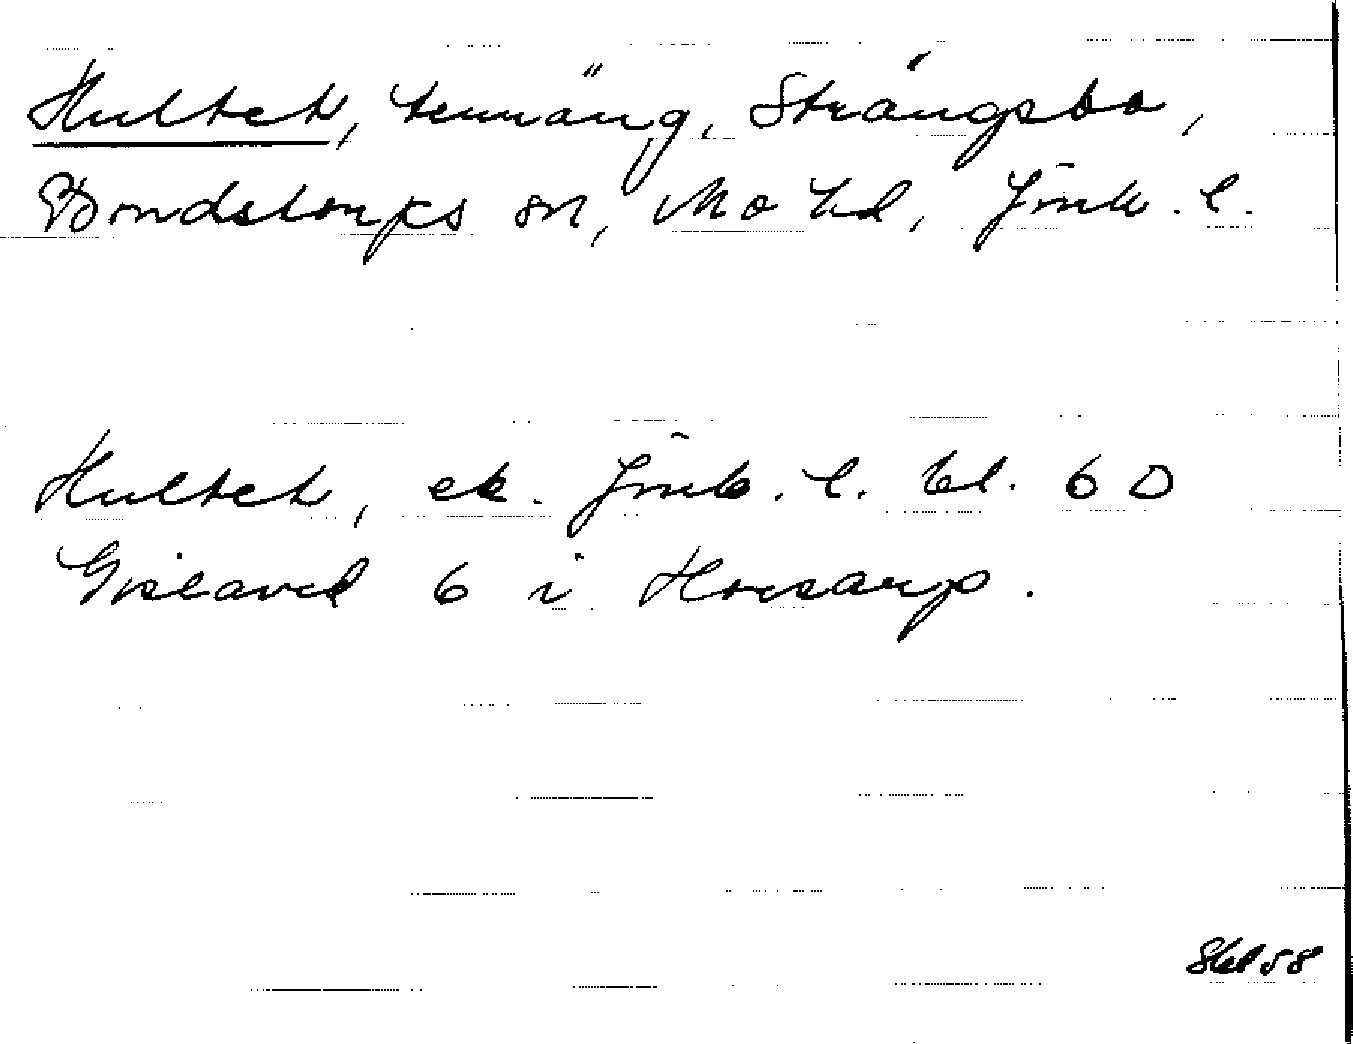 Hultet, temäng, Strängsbo,
Bondstorps sn, Mo hd, Jönk. l.
Hultet, ek. Jönk. l. bl. 6 D
Gislaved 6 i Horsarp.
Skbl 58